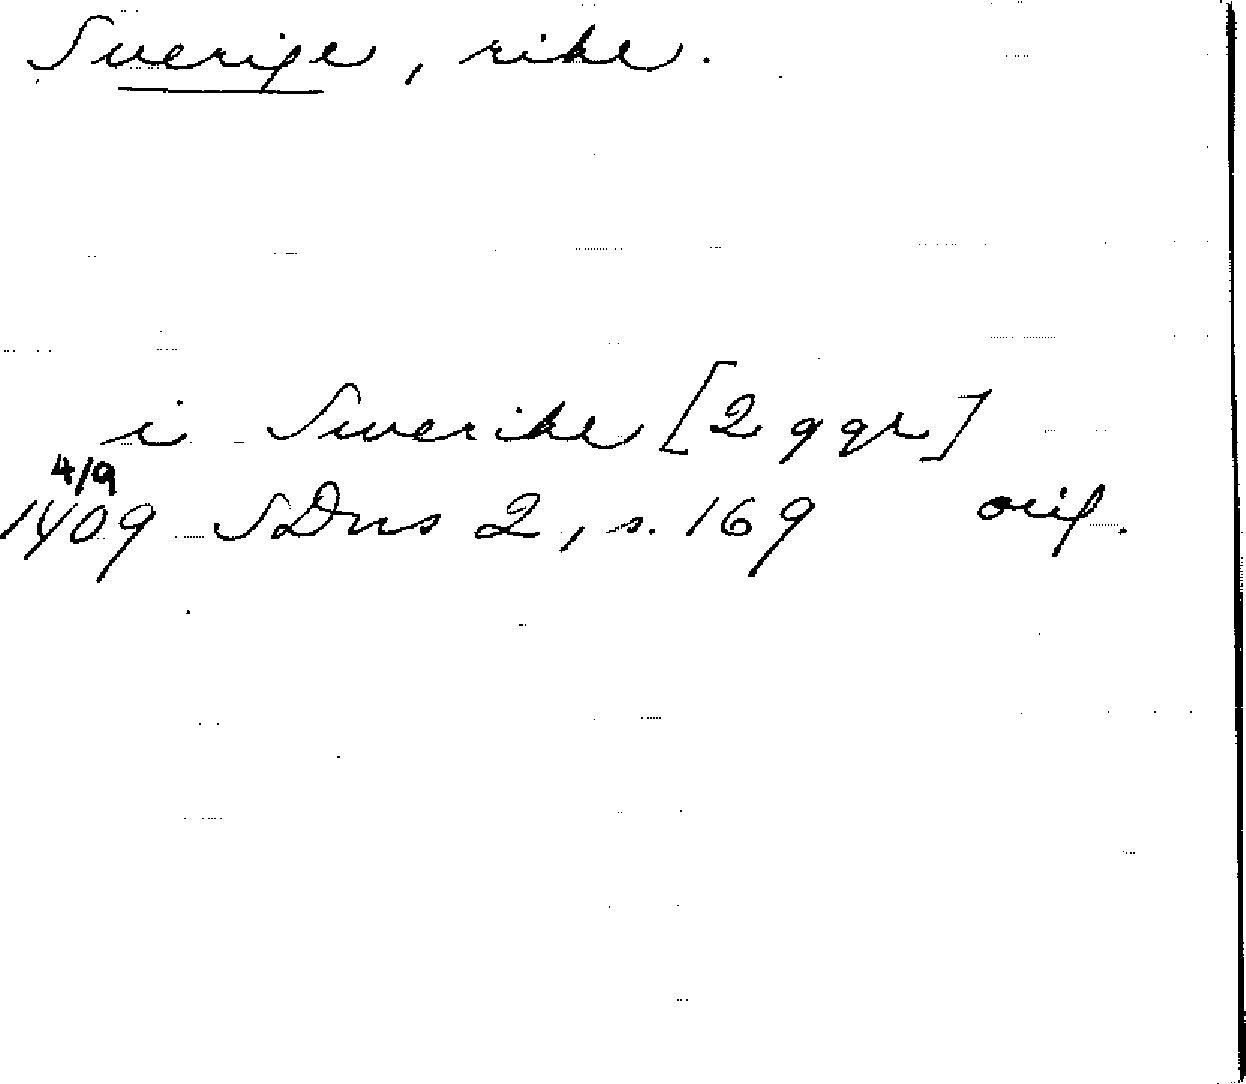 Sverige, rike.
i Swerike [2 ggr]
4/9
1409 SDns 2, s. 169 orig.